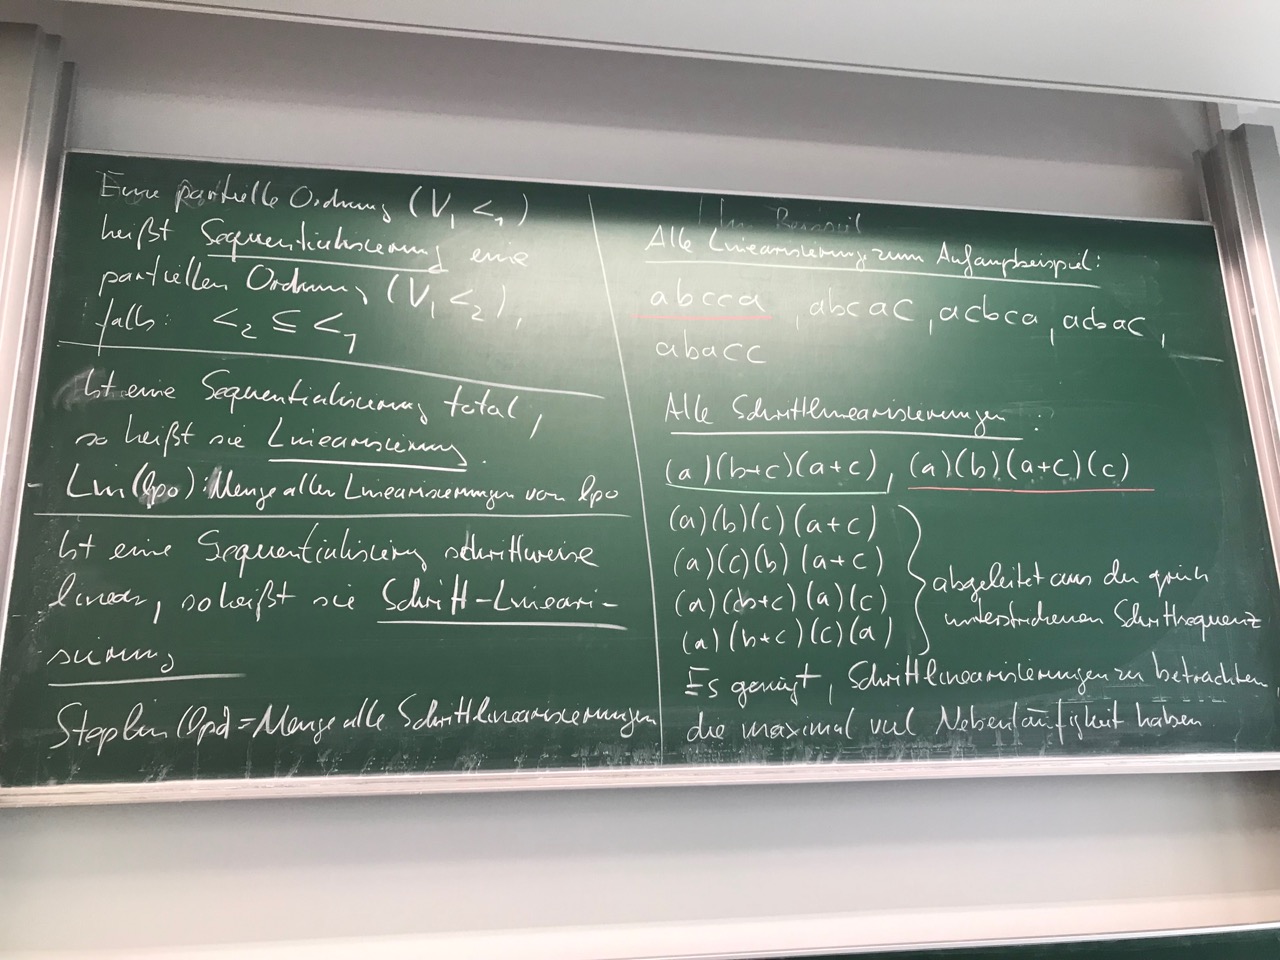 Eine partielle Ordnung (V, <₁)
heißt Sequentialisierung eine
partiellen Ordnung (V, <₂),
falls: <₂ ⊆ <₁
Ist eine Sequentialisierung total,
so heißt sie Linearisierung.
- Lin(lpo): Menge aller Linearisierungen von lpo
Ist eine Sequentialisierung schrittweise
linear, so heißt sie Schritt-Lineari-
sierung
Steplin(lpo) = Menge alle Schrittlinearisierungen
Im Beispiel
Alle Linearisierung zum Anfangsbeispiel:
abcca, abcac, acbca, acbac,
abacc
Alle Schrittlinearisierungen:
(a)(b+c)(a+c), (a)(b)(a+c)(c)
(a)(b)(c)(a+c)
(a)(c)(b)(a+c)
(a)(b+c)(a)(c)
(a)(b+c)(c)(a)
abgeleitet aus der grün
unterstrichenen Schrittsequenz
Es genügt, Schrittlinearisierungen zu betrachten,
die maximal viel Nebenläufigkeit haben